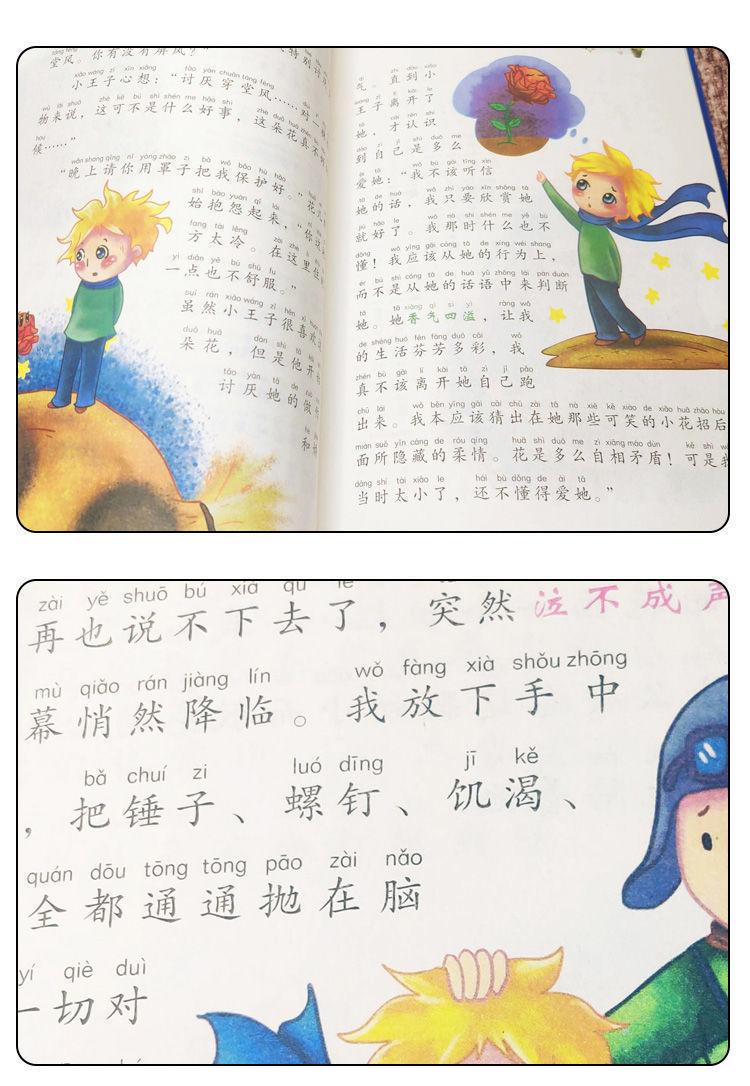 堂风。你有没有屏风？”
xiǎo wáng zǐ xīn xiǎng tǎo yàn chuān táng fēng
小王子心想：“讨厌穿堂风……对
wù lái shuō zhè kě bù shì shén me hǎo shì
物来说，这可不是什么好事，这朵花真不
hòu
候……”
wǎn shang qǐng nǐ yòng zhào zi bǎ wǒ bǎo hù hǎo
“晚上请你用罩子把我保护好。”花
shǐ bào yuàn qǐ lái
始抱怨起来，“你这
fang tài lěng
方太冷。在这里住
yì diǎn yě bù shū fu
一点也不舒服。”
suī rán xiǎo wáng zǐ hěn xǐ huan
虽然小王子很喜欢
duǒ huā dàn shì tā
朵花，但是他开
tǎo yàn tā de
讨厌她的做
和
qì zhí dào xiǎo
气。直到小
wáng zǐ lí kāi le
王子离开了
tā cái rèn shi
她，才认识
dào zì jǐ shì duō me
到自己是多么
ài tā wǒ bù gāi tīng xìn
爱她：“我不该听信
tā de huà wǒ zhǐ yào xīn shǎng tā
她的话，我只要欣赏她
jiù hǎo le wǒ nà shí shén me yě bù
就好了。我那时什么也不
dǒng wǒ yīng gāi cóng tā de xíng wéi shang
懂！我应该从她的行为上，
ér bú shì cóng tā de huà yǔ zhōng lái pàn duàn
而不是从她的话语中来判断
tā tā xiāng qì sì yì ràng wǒ
她。她香气四溢，让我
de shēng huó fēn fāng duō cǎi wǒ
的生活芬芳多彩，我
zhēn bù gāi lí kāi tā zì jǐ pǎo
真不该离开她自己跑
chū lái wǒ běn yīng gāi cāi chū zài tā nà xiē kě xiào de xiǎo huā zhāo hòu
出来。我本应该猜出在她那些可笑的小花招后
miàn suǒ yǐn cáng de róu qíng huā shì duō me zì xiāng máo dùn kě shì wǒ
面所隐藏的柔情。花是多么自相矛盾！可是我
dāng shí tài xiǎo le hái bù dǒng de ài tā
当时太小了，还不懂得爱她。”
zài yě shuō bú xià qù le
再也说不下去了，突然泣不成声
mù qiǎo rán jiàng lín wǒ fàng xià shǒu zhōng
幕悄然降临。我放下手中
bǎ chuí zi luó dīng jī kě
，把锤子、螺钉、饥渴、
quán dōu tōng tōng pāo zài nǎo
全都通通抛在脑
yí qiè duì
一切对